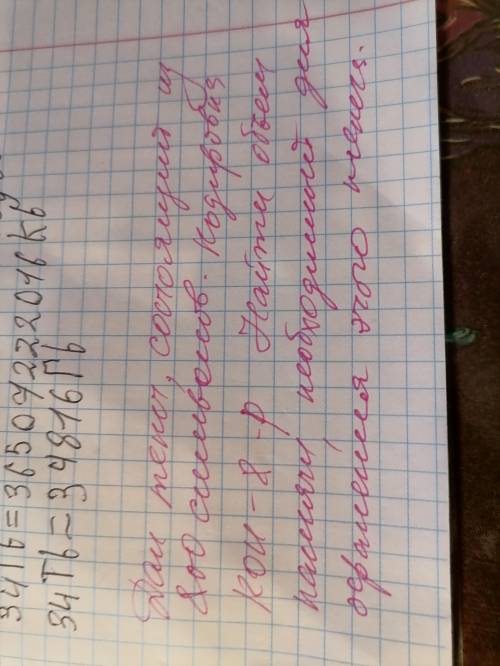 34Tb=36507222016Kb
34Tb=34816Гb
Дан текст, состоящий из
800 символов. Кодировка
КОИ-8-Р Найти объем
памяти, необходимый для
хранения этого текста.